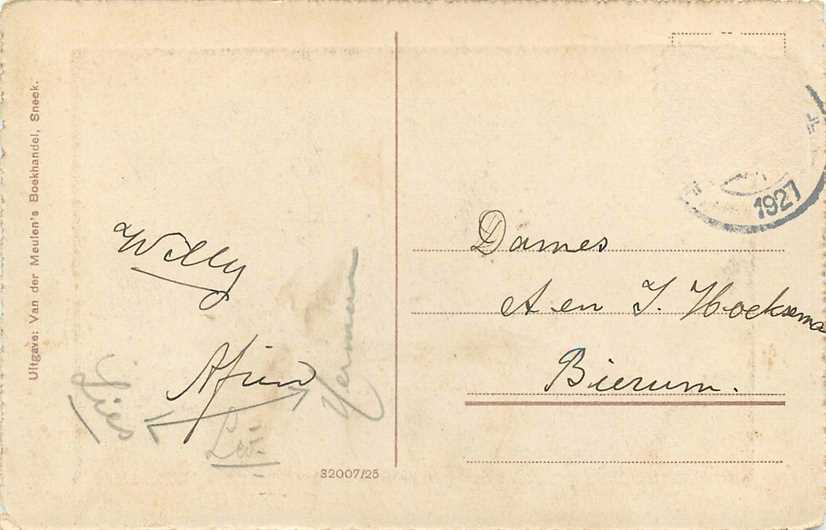 Uitgave: Van der Meulen's Boekhandel, Sneek.
Willy
Afien
Lies
Herman
32007/25
1927
Dames
A en J. Hoeksema
Bierum.